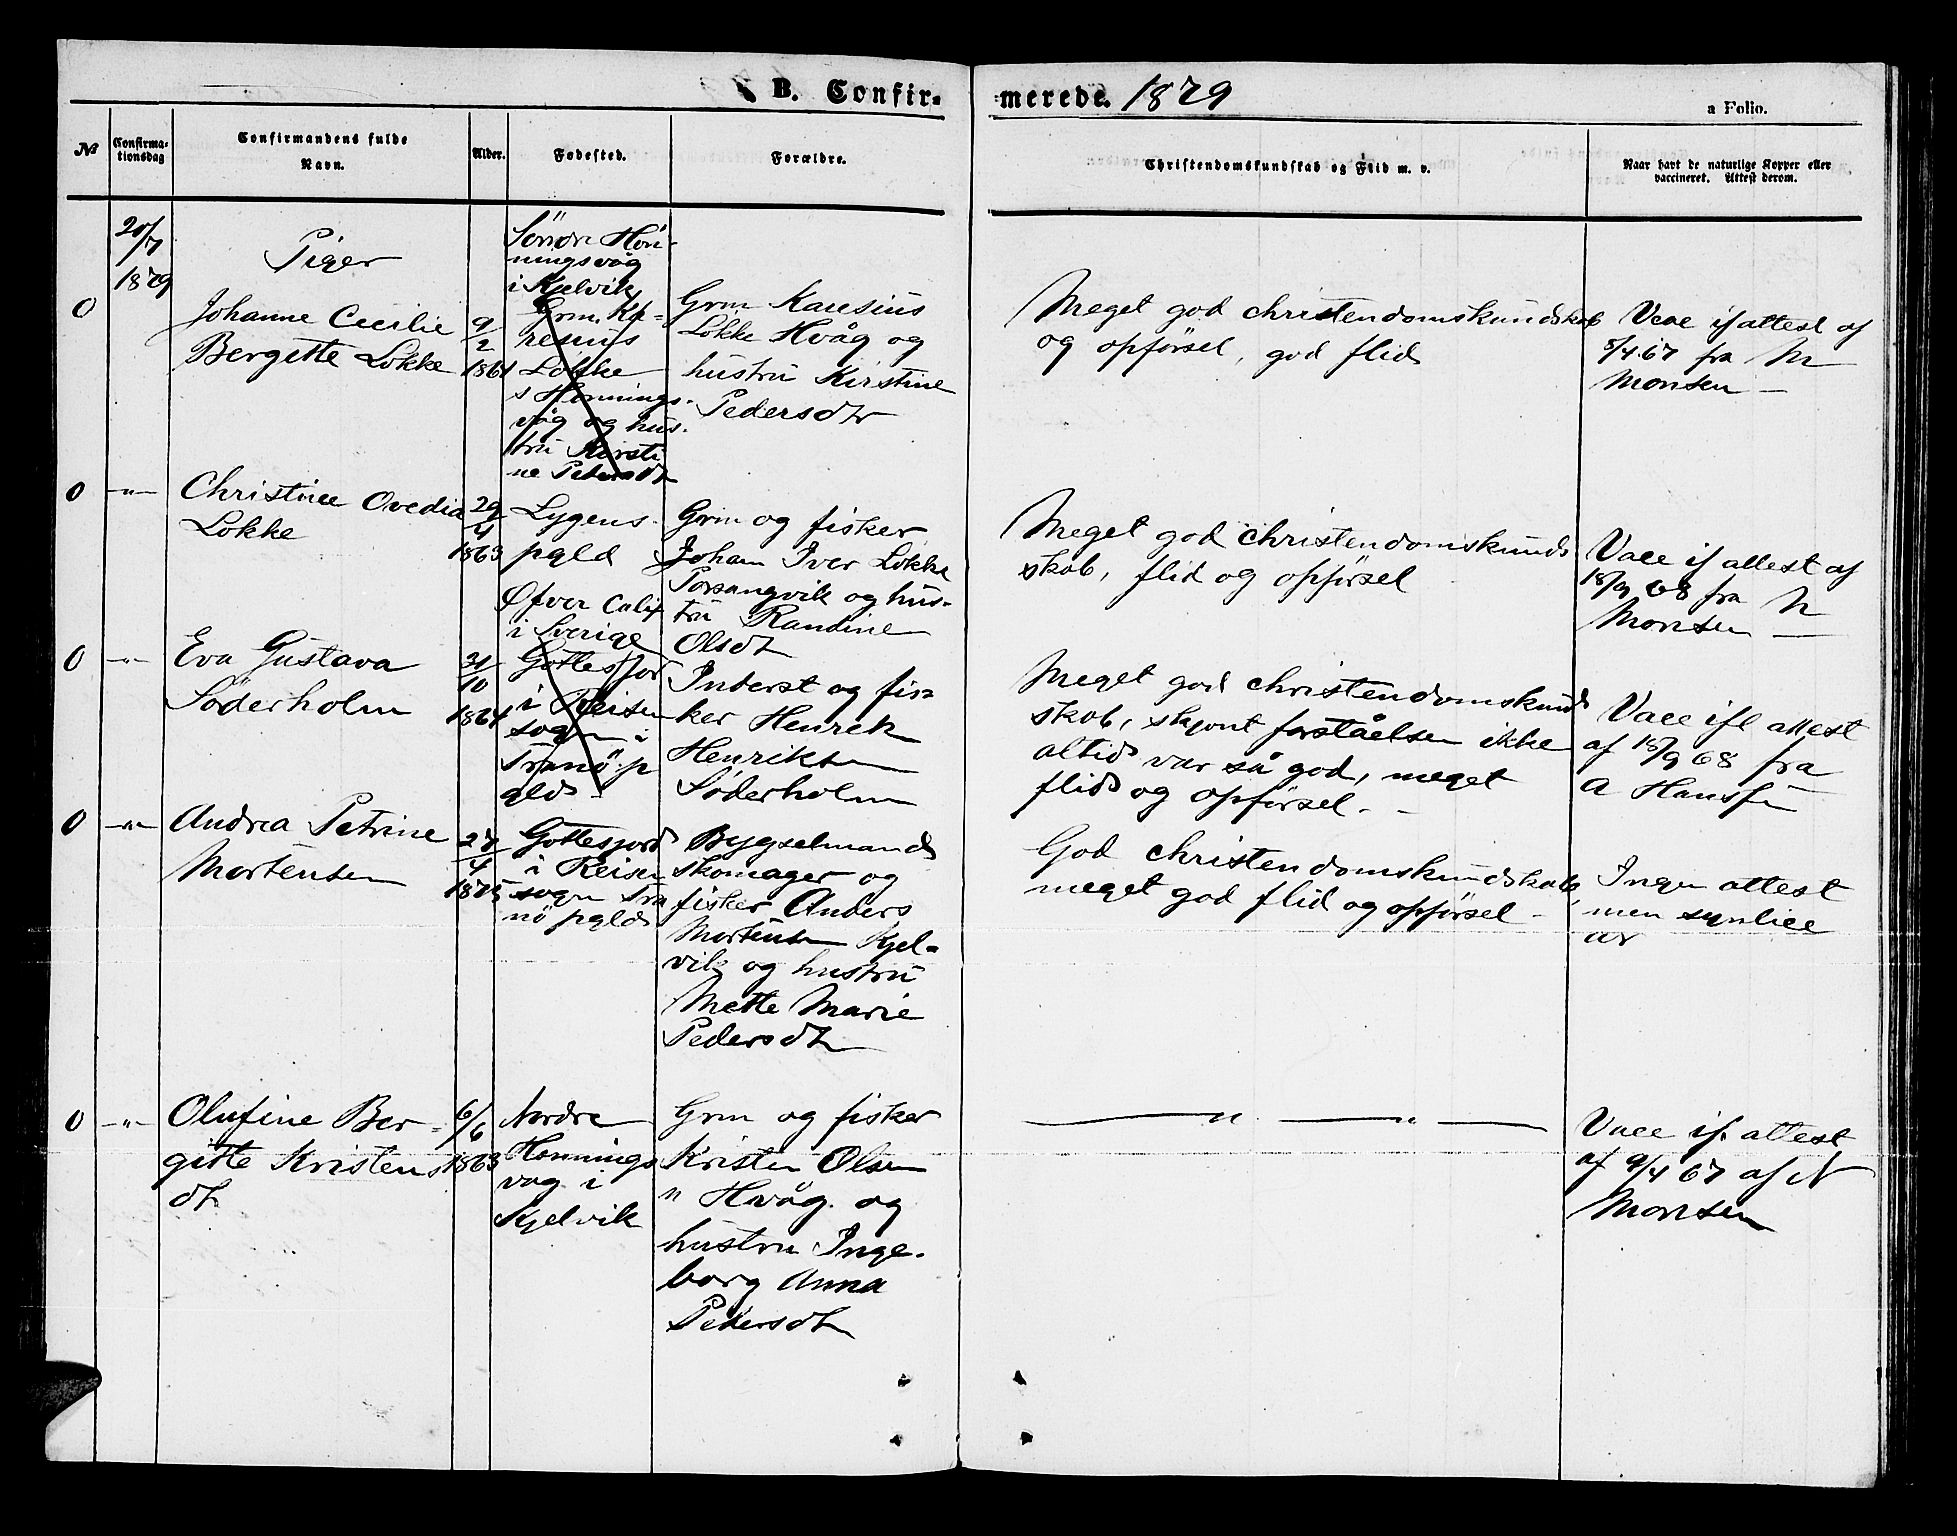 B. Confir-
merede. 1879
a Folio.
№
Confirma-
tionsdag
Confirmandens fulde
Navn.
Alder.
Fødested.
Forældre.
Christendomskundskab og Flid m. v.
Naar havt de naturlige Kopper eller
vaccineret. Attest derom.
20/7
1879
Piger
0
Johanne Cecilie
Bergitte Lokke
9/2
1864
Söndre Hön-
ningsvåg
i Kjelvik
Grm. Ka-
resius
Lökke
s Honnings-
våg og hus-
tru Kirsti
ne Pedersdt
Grm Karesius
Lökke Hvåg og
hustru Kirstine
Pedersdtr
Meget god christendomskundskab
og opförsel, god flid
Vacc if attest af
8/4 67 fra M
Monsen —
0
—"—
Christine Ovedia
Lokke
29/4
1863
Lygens-
pgld
Grm og fisker
Johan Iver Lokke
Porsangvik og hus-
tru Randine
Olsdt
Meget god christendomskunds
skab, flid og opförsel
Vacc if attest af
18/9 68 fra M
Monsen —
0
—"—
Eva Gustava
Söderholm
31/10
1864
Øfver Calix
i Sverige
Gottesfjor
i Reisen
sogn i
Tranö p
gld
Inderst og fis-
ker Henrik
Henriksen
Söderholm
Meget god christendomskund
skab, skjønt forståelsen ikke
altid var så god, meget
flid og opførsel. —
Vacc ifl attest
af 18/9 68 fra
A Hanssen
0
—"—
Andrea Petrine
Mortensen
27/4
Gottesfjord
i Reisen
sogn Tra
nö pgld
Bygselmand
skomager og
fisker Anders
Mortensen Kjel-
vik og hustru
Mette Marie
Pedersdt
God christendomskundskab,
meget god flid og opførsel —
Ingen attest
men synlige
ar
0
—"—
Olufine Ber-
gitte Kristens
dt
6/6
1863
Nordre
Honnings
vag i
Kjelvik
Grm og fisker
Kristen Olsen
" Hvåg. og
hustru Inge-
borg Anna
Pedersdt
— " — " —
Vacc if. attest
af 9/4 67 af N
Monsen